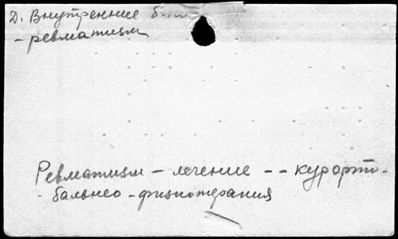 Д. Внутренние
- ревматизм
Ревматизм – лечение -- курорто-
- бальнео - физиотерапия